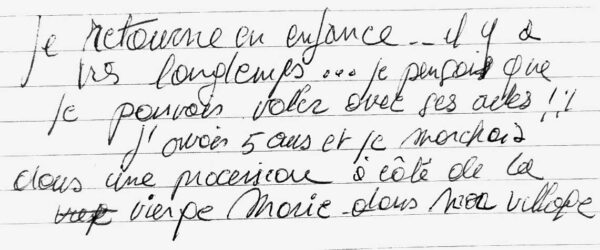 Je retourne en enfance... il y a
très longtemps... je pensais que
je pouvais voler avec ses ailes !!!
J'avais 5 ans et je marchais
dans une procession à côté de la
vierge Marie dans mon village